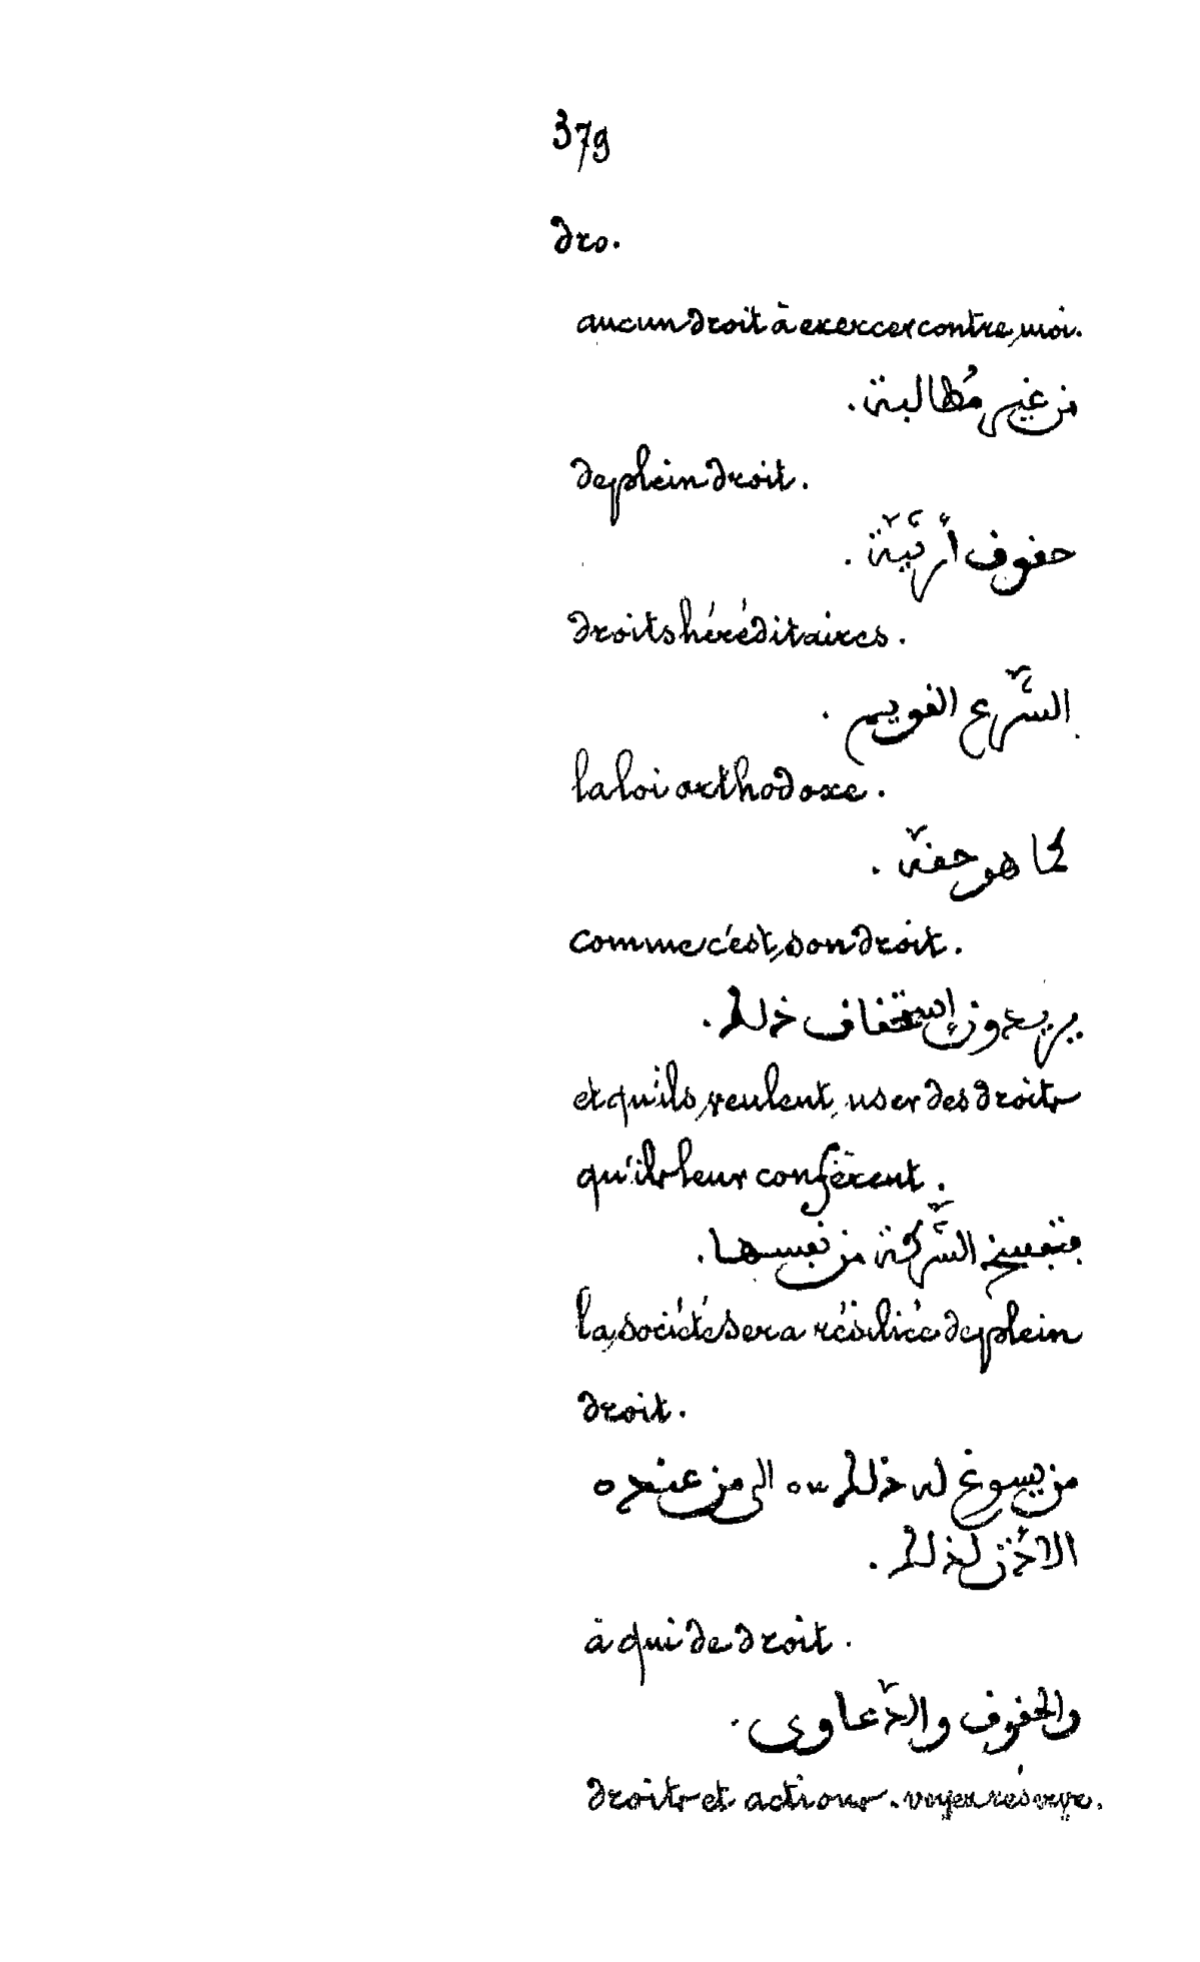 379
dro.
aucun droit à exercer contre moi.
من غير مُطالبة.
de plein droit.
حقوق أرثيّة.
droits héréditaires.
الشّرع القويم.
la loi orthodoxe.
كما هو حقّه.
comme c'est son droit.
يريدون إستحقاق ذلك.
et qu'ils veulent user des droits
qu'ils leur confèrent.
فتنفسخ الشّركة من نفسها.
la société sera résiliée de plein
droit.
من يسوغ له ذلك الى من عنده
الاذن لذلك.
à qui de droit.
والحقوق والدّعاوى.
droits et actions. voyez réserve.